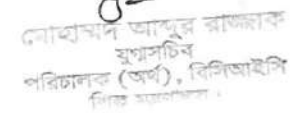 মোহাম্মদ আব্দুর রাজ্জাক
যুগ্মসচিব
পরিচালক (অর্থ), বিসিআইসি
শিল্প মন্ত্রণালয় ।